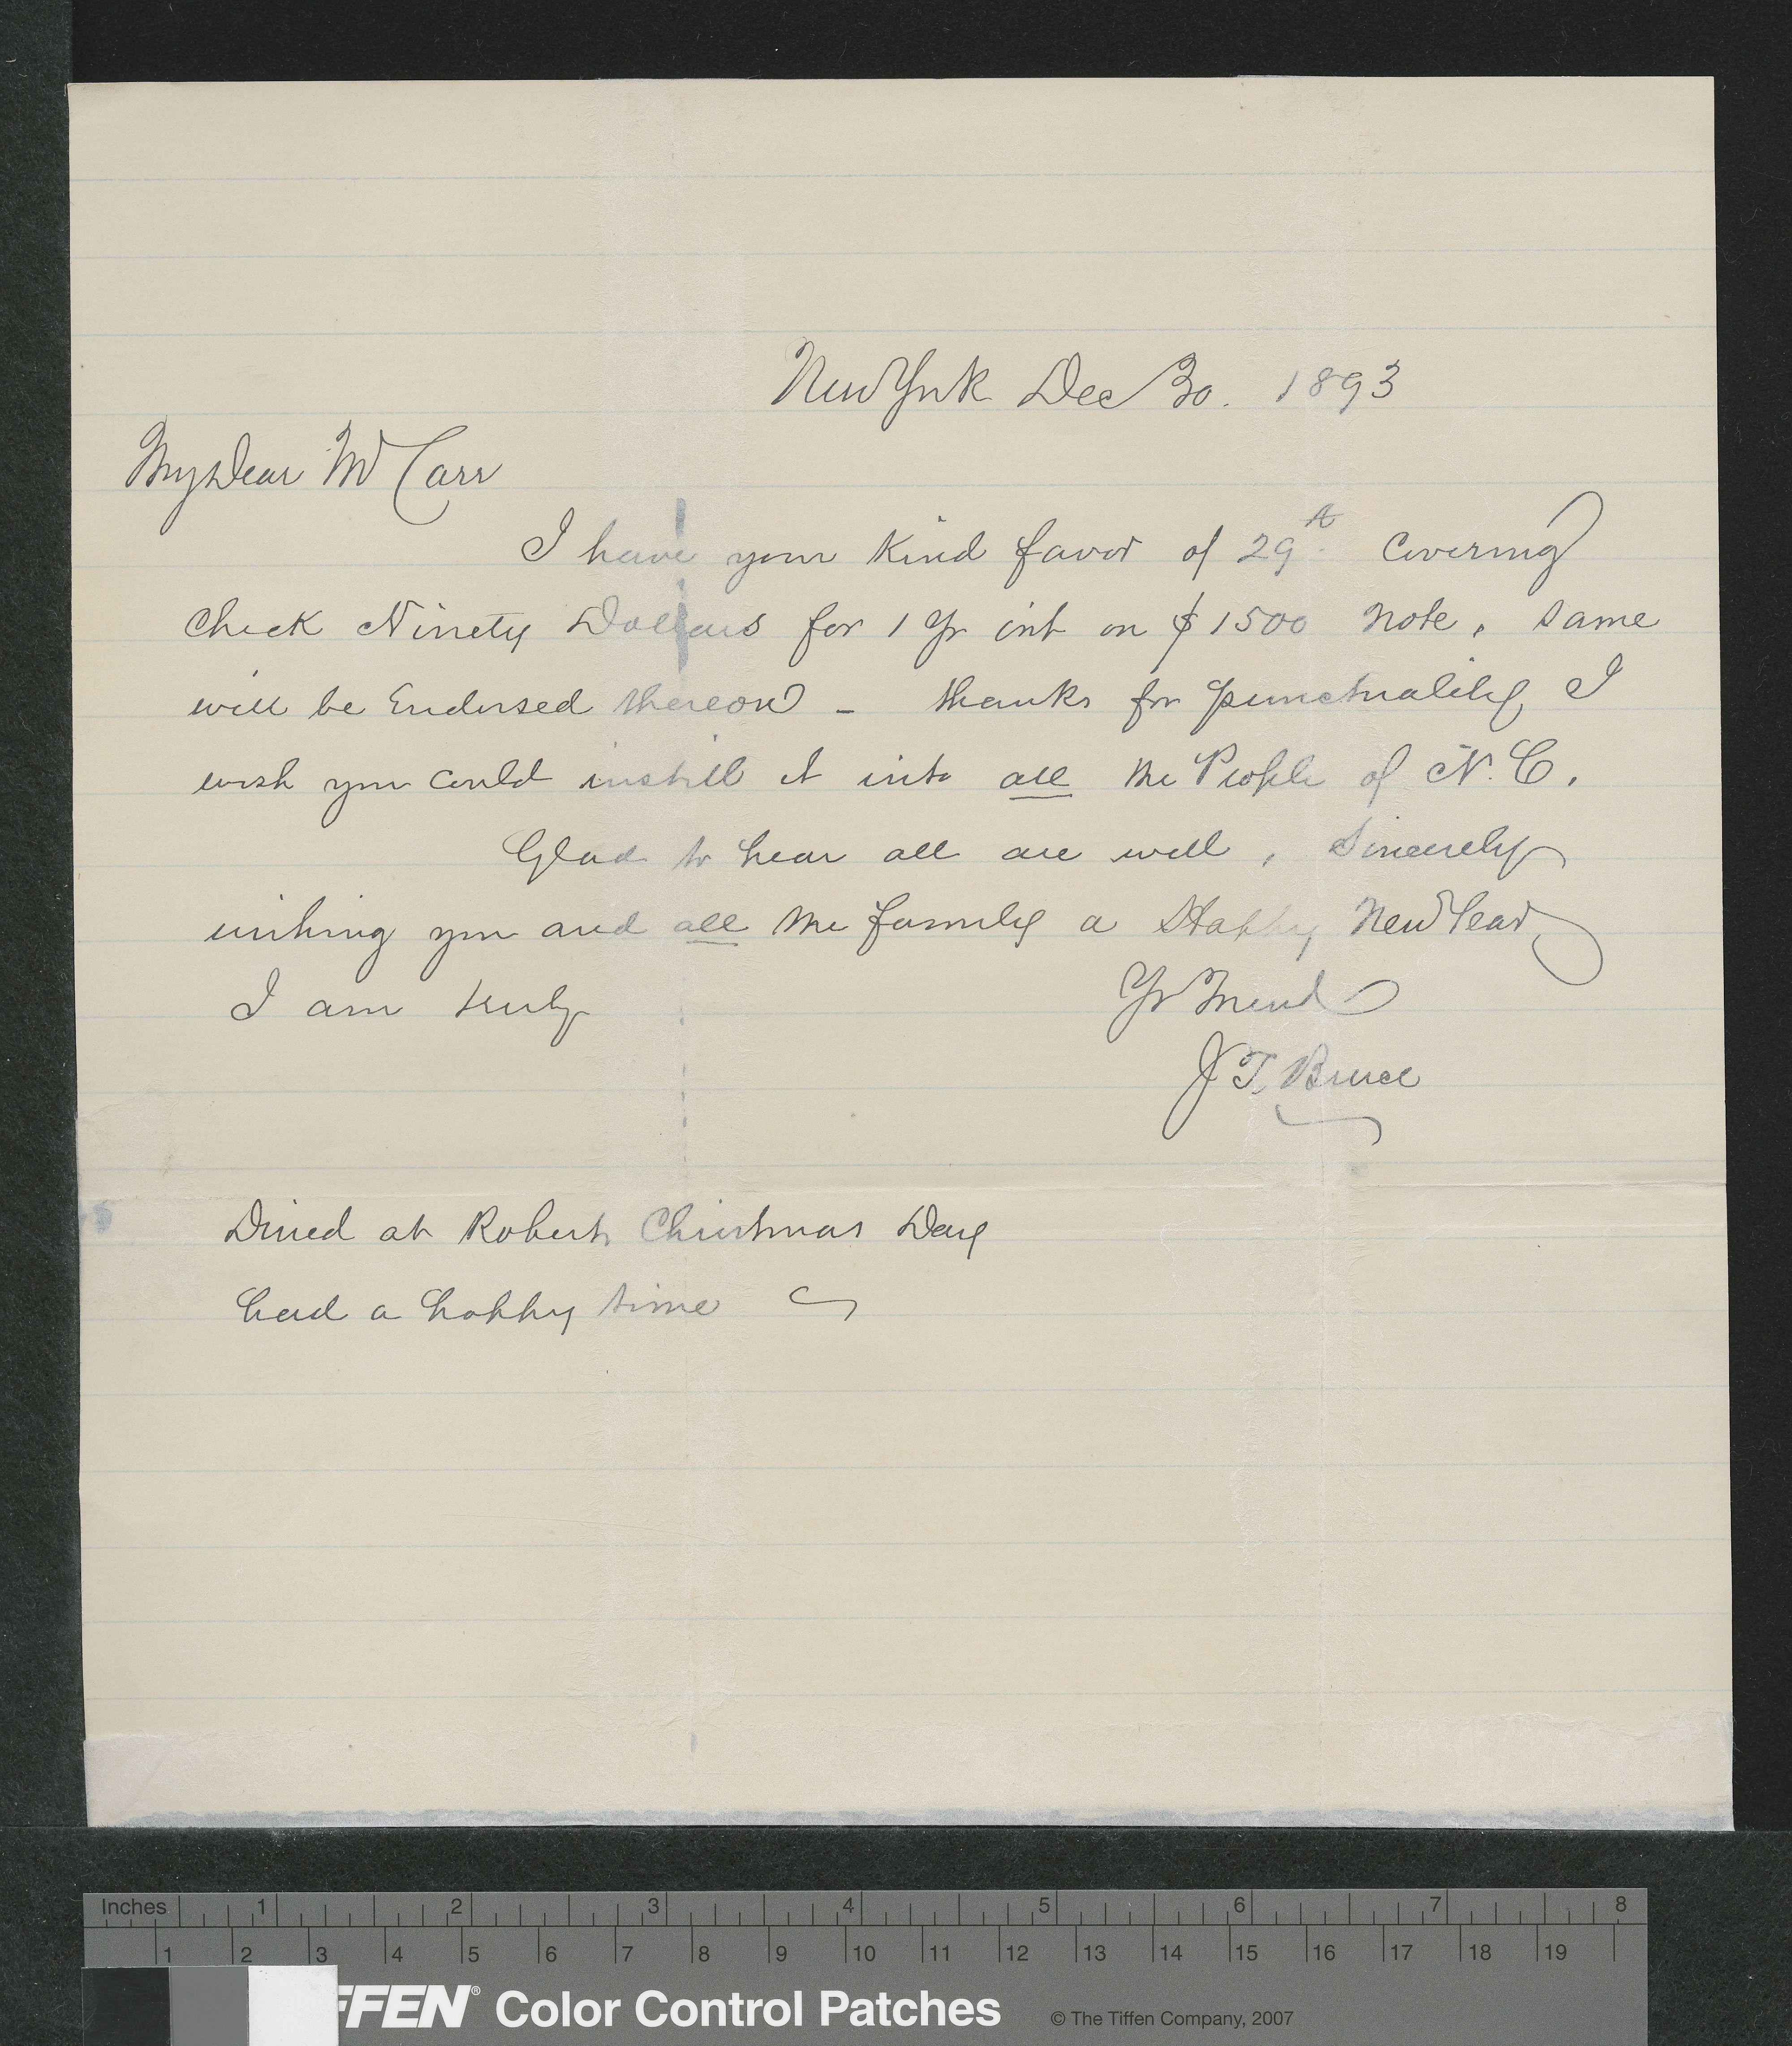 New York Dec 30. 1893
My Dear Mr Carr
I have your Kind favor of 29th. Covering
Check Ninety Dollars for 1 Yr int on $1500 Note, Same
will be Endorsed thereon - thanks for punctuality, I
wish you could instill it into all the People of N. C.
Glad to hear all are well, Sincerely
wishing you and all the family a Happy New Year,
I am truly
Yr Friend
J T. Bruce
Dined at Roberts Christmas Day
had a happy time
Inches 1 2 3 4 5 6 7 8
1 2 3 4 5 6 7 8 9 10 11 12 13 14 15 16 17 18 19
FFEN® Color Control Patches © The Tiffen Company, 2007